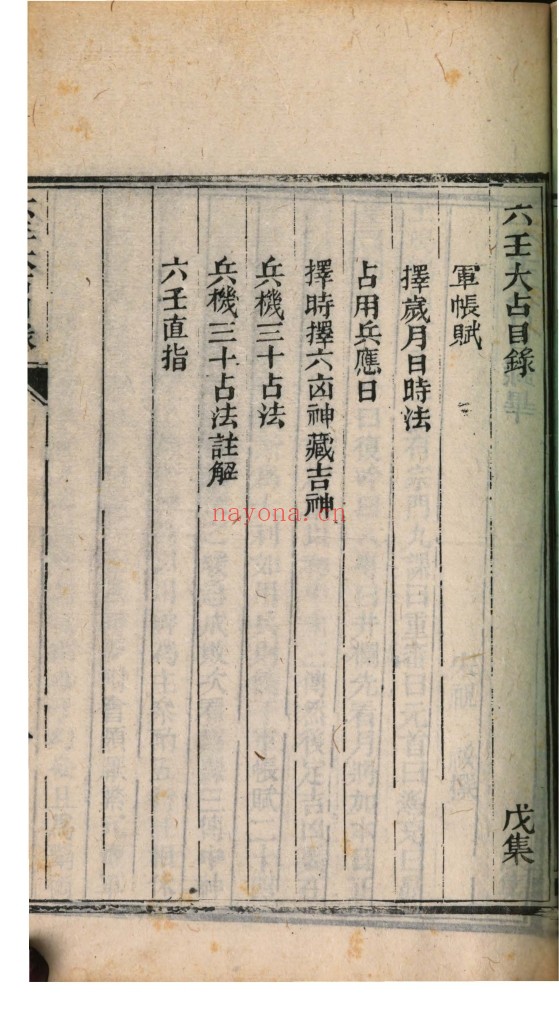 六壬大占目錄 戊集
軍帳賦
擇歲月日時法
占用兵應日
擇時擇六凶神藏吉神
兵機三十占法
兵機三十占法註解
六壬直指
nayona.cn